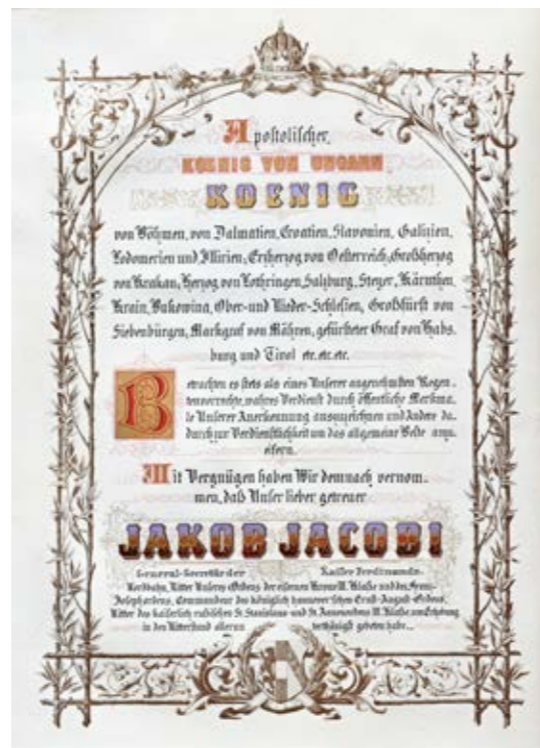 Apostolischer,
KOENIG VON UNGARN,
KOENIG
von Böhmen, von Dalmatien, Croatien, Slavonien, Galizien,
Lodomerien und Illirien; Erzherzog von Oesterreich, Großherzog
von Krakau, Herzog von Lothringen, Salzburg, Steyer, Kärnthen,
Krain, Bukowina, Ober- und Nieder-Schlesien, Großfürst von
Siebenbürgen, Markgraf von Mähren, gefürsteter Graf von Habs.
burg und Tirol etc. etc. etc.
Betrachten es stets als eines Unserer angenehmsten Regen.
tenvorrechte, wahres Verdienst durch öffentliche Merkma.
le Unserer Anerkennung auszuzeichnen und Andere da.
durch zur Verdienstlichkeit um das allgemeine Beste anzu.
eifern.
Mit Vergnügen haben Wir demnach vernom.
men, daß Unser lieber getreuer
JAKOB JACOBI
General-Secretär der Kaiser Ferdinands-
Nordbahn, Ritter Unseres Ordens der eisernen Krone III. Klasse und des Franz-
Josephordens, Commandeur des königlich hannover'schen Ernst-August-Ordens,
Ritter des kaiserlich russischen St. Stanislaus- und St. Annenordens III. Klasse um Erhebung
in den Ritterstand allerun terthänigst gebeten habe...